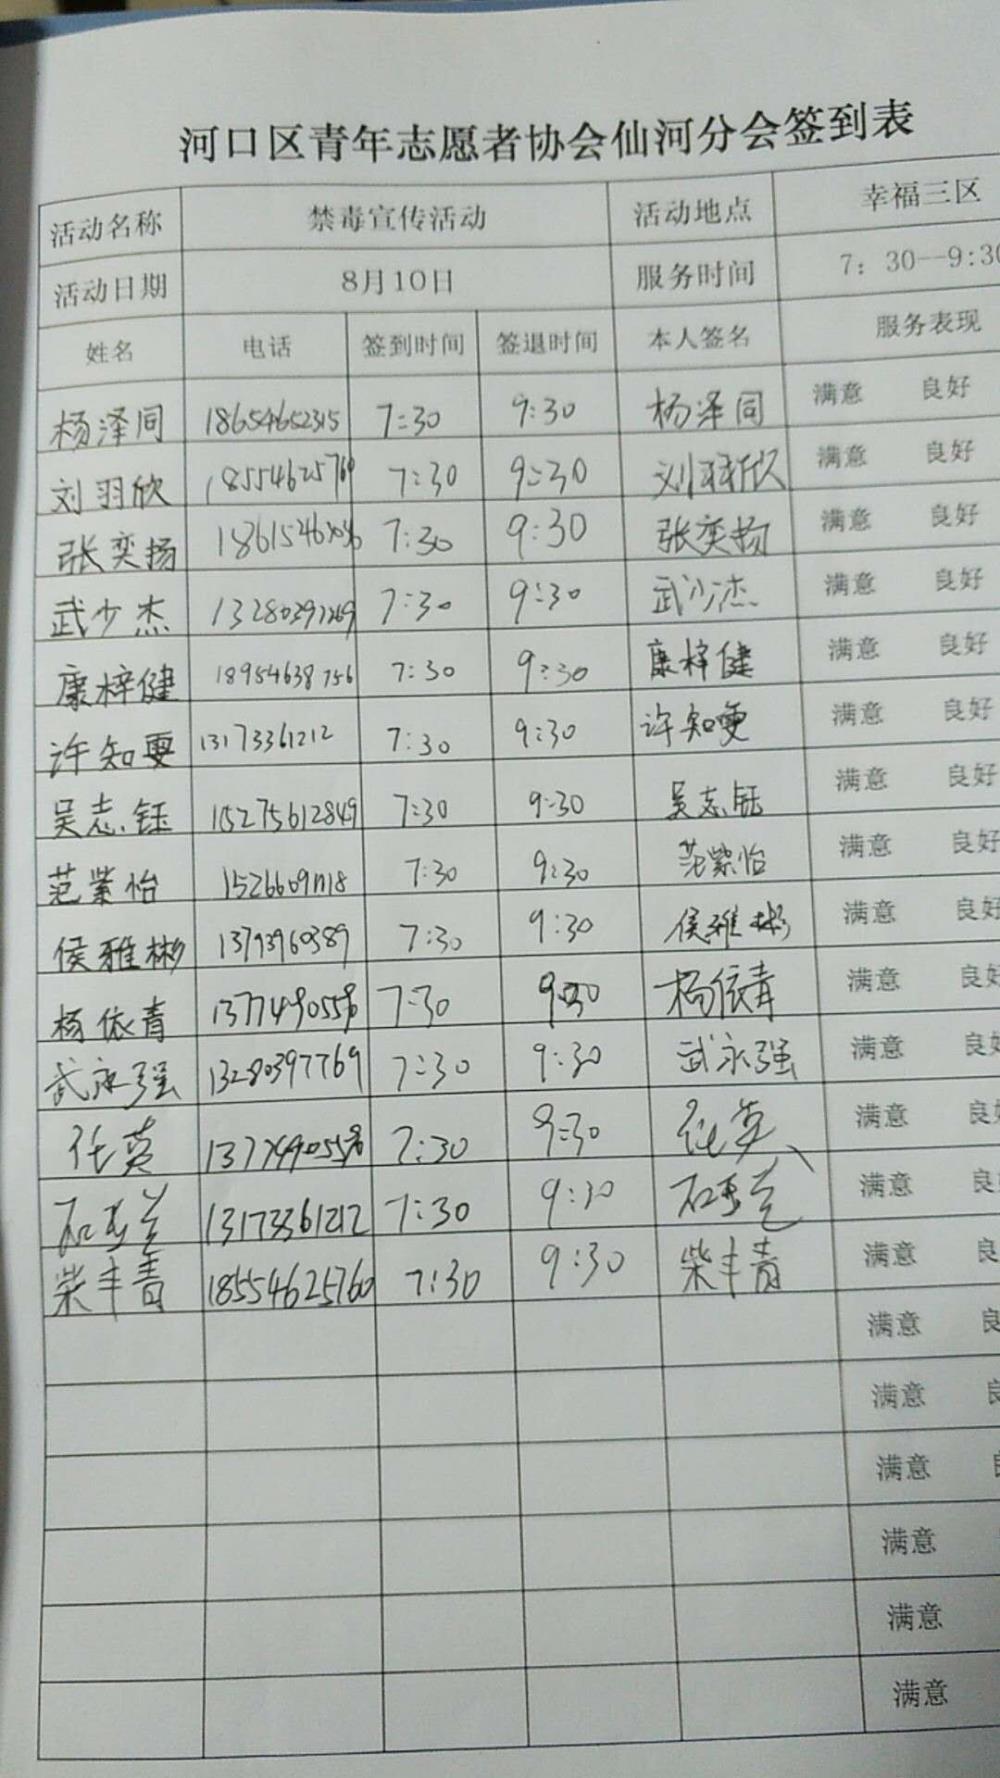 河口区青年志愿者协会仙河分会签到表
活动名称 禁毒宣传活动 活动地点 幸福三区
活动日期 8月10日 服务时间 7：30--9:30
姓名 电话 签到时间 签退时间 本人签名 服务表现
杨泽同 18654652315 7:30 9:30 杨泽同 满意 良好
刘羽欣 18554625760 7:30 9:30 刘羽欣 满意 良好
张奕扬 7:30 9:30 张奕扬 满意 良好
武少杰 7:30 9:30 武少杰 满意 良好
康梓健 18954638756 7:30 9:30 康梓健 满意 良好
许知雯 13173361212 7:30 9:30 许知雯 满意 良好
吴志钰 15275612849 7:30 9:30 吴志钰 满意 良好
范紫怡 7:30 9:30 范紫怡 满意 良好
侯雅彬 13793960389 7:30 9:30 侯雅彬 满意 良好
杨依青 7:30 9:30 杨依青 满意 良好
武永强 13280397769 7:30 9:30 武永强 满意 良
任英 7:30 9:30 任英 满意 良
13173361212 7:30 9:30 满意 良
柴丰青 18554625760 7:30 9:30 柴丰青 满意 良
满意 良
满意 良
满意
满意
满意
满意